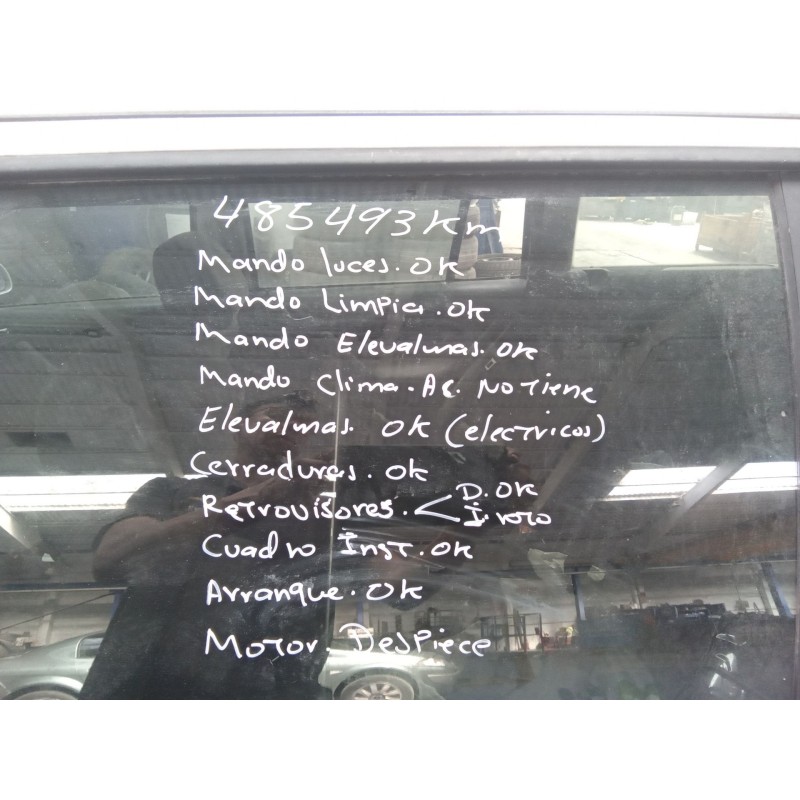 485493 Km
Mando luces. OK
Mando Limpia. OK
Mando Elevalunas. OK
Mando Clima. AC. NO Tiene
Elevalunas. OK (electricos)
Cerraduras. OK
Retrovisores. < D. OK
I. roto
Cuadro Inst. OK
Arranque. OK
Motor. Despiece